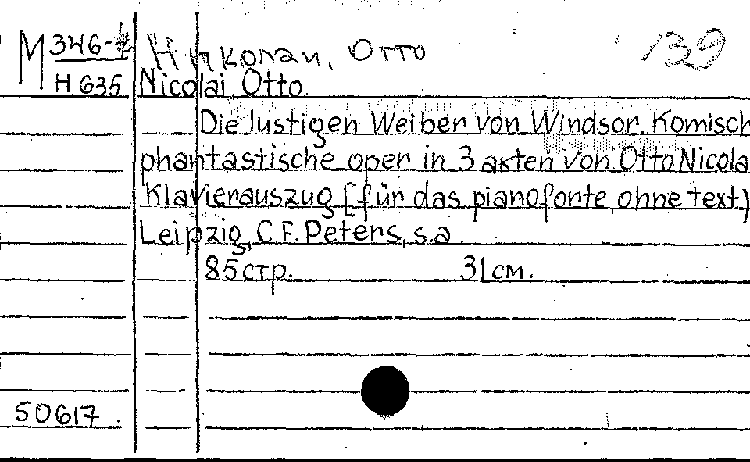 M 346-2 Николаи, Отто 139
H 635 Nicolai Otto
Die lustigen Weiber von Windsor. Komisch
phantastische oper in 3 akten von Otto Nicola
Klavierauszug [für das pianoforte ohne text.]
Leipzig, C.F. Peters, s.a
85 стр. 31 см.
50617.